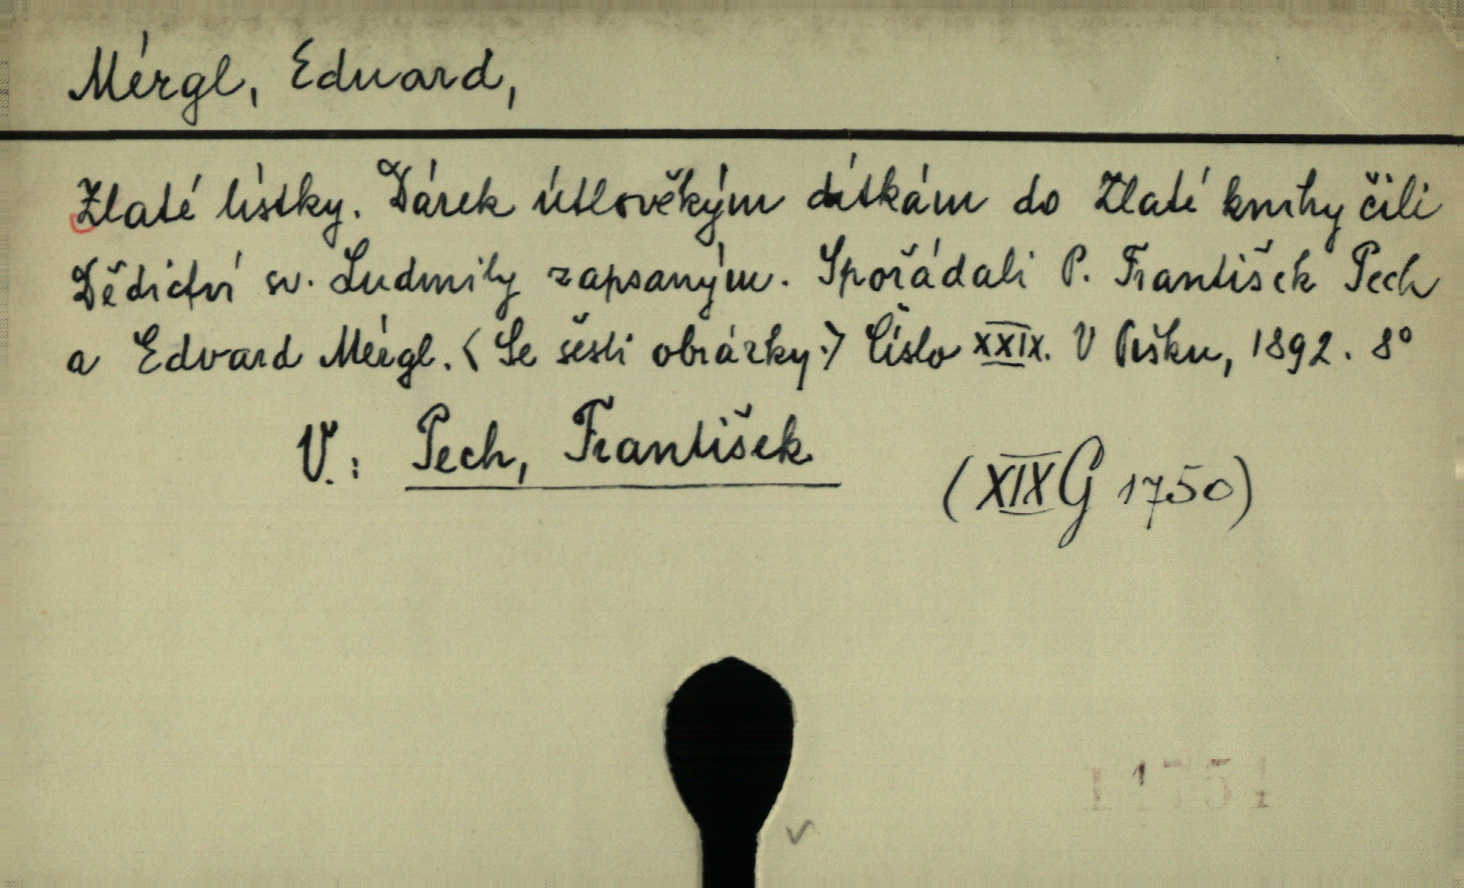 Mérgl, Eduard,
Zlaté lístky. Dárek útlověkým dítkám do Zlaté knihy čili
Dědictví sv. Ludmily zapsaným. Spořádali P. František Pech
a Edvard Mérgl. (Se šesti obrázky.) Číslo XXIX. V Písku, 1892. 8°
V.: Pech, František
(XIX G 1750)